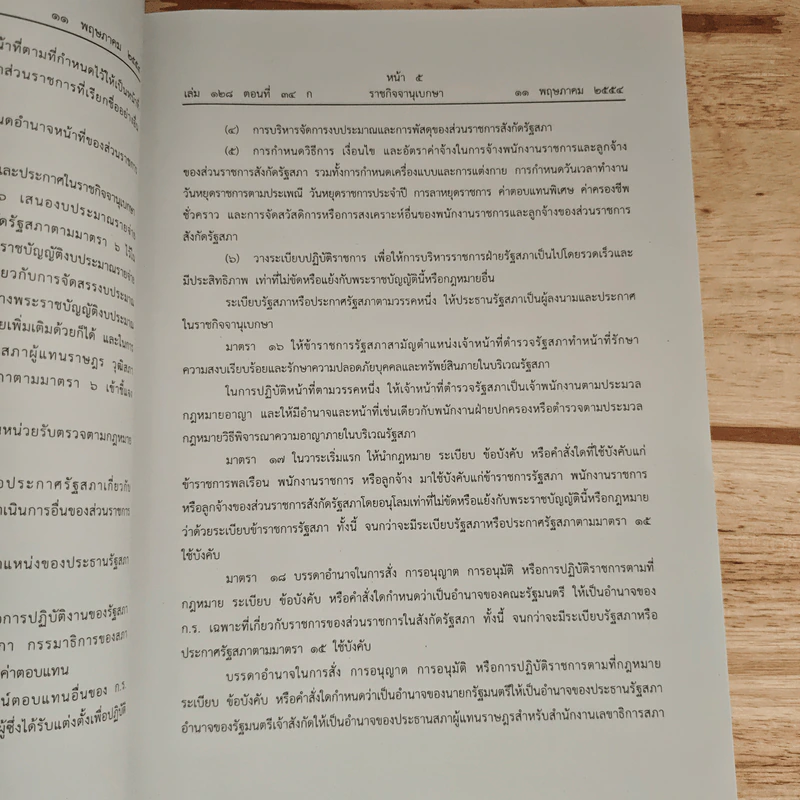 ๑๑ พฤษภาคม ๒๕๕๔
น้าที่ตามที่กำหนดไว้ให้เป็นหน้าที่
าส่วนราชการที่เรียกชื่ออย่างอื่น
นดอำนาจหน้าที่ของส่วนราชการ
และประกาศในราชกิจจานุเบกษา
๖ เสนองบประมาณรายจ่าย
ดรัฐสภาตามมาตรา ๖ ไว้ใน
ราชบัญญัติงบประมาณรายจ่าย
ยวกับการจัดสรรงบประมาณ
างพระราชบัญญัติงบประมาณ
ยเพิ่มเติมด้วยก็ได้ และในการ
สภาผู้แทนราษฎร วุฒิสภา
าตามมาตรา ๖ เข้าชี้แจง
นหน่วยรับตรวจตามกฎหมาย
อประกาศรัฐสภาเกี่ยวกับ
าเนินการอื่นของส่วนราชการ
ำแหน่งของประธานรัฐสภา
อการปฏิบัติงานของรัฐสภา
ภา กรรมาธิการของสภา
ค่าตอบแทน
น์ตอบแทนอื่นของ ก.ร.
ผู้ซึ่งได้รับแต่งตั้งเพื่อปฏิบัติ
หน้า ๕
เล่ม ๑๒๘ ตอนที่ ๓๔ ก ราชกิจจานุเบกษา ๑๑ พฤษภาคม ๒๕๕๔
(๔) การบริหารจัดการงบประมาณและการพัสดุของส่วนราชการสังกัดรัฐสภา
(๕) การกำหนดวิธีการ เงื่อนไข และอัตราค่าจ้างในการจ้างพนักงานราชการและลูกจ้าง
ของส่วนราชการสังกัดรัฐสภา รวมทั้งการกำหนดเครื่องแบบและการแต่งกาย การกำหนดวันเวลาทำงาน
วันหยุดราชการตามประเพณี วันหยุดราชการประจำปี การลาหยุดราชการ ค่าตอบแทนพิเศษ ค่าครองชีพ
ชั่วคราว และการจัดสวัสดิการหรือการสงเคราะห์อื่นของพนักงานราชการและลูกจ้างของส่วนราชการ
สังกัดรัฐสภา
(๖) วางระเบียบปฏิบัติราชการ เพื่อให้การบริหารราชการฝ่ายรัฐสภาเป็นไปโดยรวดเร็วและ
มีประสิทธิภาพ เท่าที่ไม่ขัดหรือแย้งกับพระราชบัญญัตินี้หรือกฎหมายอื่น
ระเบียบรัฐสภาหรือประกาศรัฐสภาตามวรรคหนึ่ง ให้ประธานรัฐสภาเป็นผู้ลงนามและประกาศ
ในราชกิจจานุเบกษา
มาตรา ๑๖ ให้ข้าราชการรัฐสภาสามัญตำแหน่งเจ้าหน้าที่ตำรวจรัฐสภาทำหน้าที่รักษา
ความสงบเรียบร้อยและรักษาความปลอดภัยบุคคลและทรัพย์สินภายในบริเวณรัฐสภา
ในการปฏิบัติหน้าที่ตามวรรคหนึ่ง ให้เจ้าหน้าที่ตำรวจรัฐสภาเป็นเจ้าพนักงานตามประมวล
กฎหมายอาญา และให้มีอำนาจและหน้าที่เช่นเดียวกับพนักงานฝ่ายปกครองหรือตำรวจตามประมวล
กฎหมายวิธีพิจารณาความอาญาภายในบริเวณรัฐสภา
มาตรา ๑๗ ในวาระเริ่มแรก ให้นำกฎหมาย ระเบียบ ข้อบังคับ หรือคำสั่งใดที่ใช้บังคับแก่
ข้าราชการพลเรือน พนักงานราชการ หรือลูกจ้าง มาใช้บังคับแก่ข้าราชการรัฐสภา พนักงานราชการ
หรือลูกจ้างของส่วนราชการสังกัดรัฐสภาโดยอนุโลมเท่าที่ไม่ขัดหรือแย้งกับพระราชบัญญัตินี้หรือกฎหมาย
ว่าด้วยระเบียบข้าราชการรัฐสภา ทั้งนี้ จนกว่าจะมีระเบียบรัฐสภาหรือประกาศรัฐสภาตามมาตรา ๑๕
ใช้บังคับ
มาตรา ๑๘ บรรดาอำนาจในการสั่ง การอนุญาต การอนุมัติ หรือการปฏิบัติราชการตามที่
กฎหมาย ระเบียบ ข้อบังคับ หรือคำสั่งใดกำหนดว่าเป็นอำนาจของคณะรัฐมนตรี ให้เป็นอำนาจของ
ก.ร. เฉพาะที่เกี่ยวกับราชการของส่วนราชการในสังกัดรัฐสภา ทั้งนี้ จนกว่าจะมีระเบียบรัฐสภาหรือ
ประกาศรัฐสภาตามมาตรา ๑๕ ใช้บังคับ
บรรดาอำนาจในการสั่ง การอนุญาต การอนุมัติ หรือการปฏิบัติราชการตามที่กฎหมาย
ระเบียบ ข้อบังคับ หรือคำสั่งใดกำหนดว่าเป็นอำนาจของนายกรัฐมนตรีให้เป็นอำนาจของประธานรัฐสภา
อำนาจของรัฐมนตรีเจ้าสังกัดให้เป็นอำนาจของประธานสภาผู้แทนราษฎรสำหรับสำนักงานเลขาธิการสภา